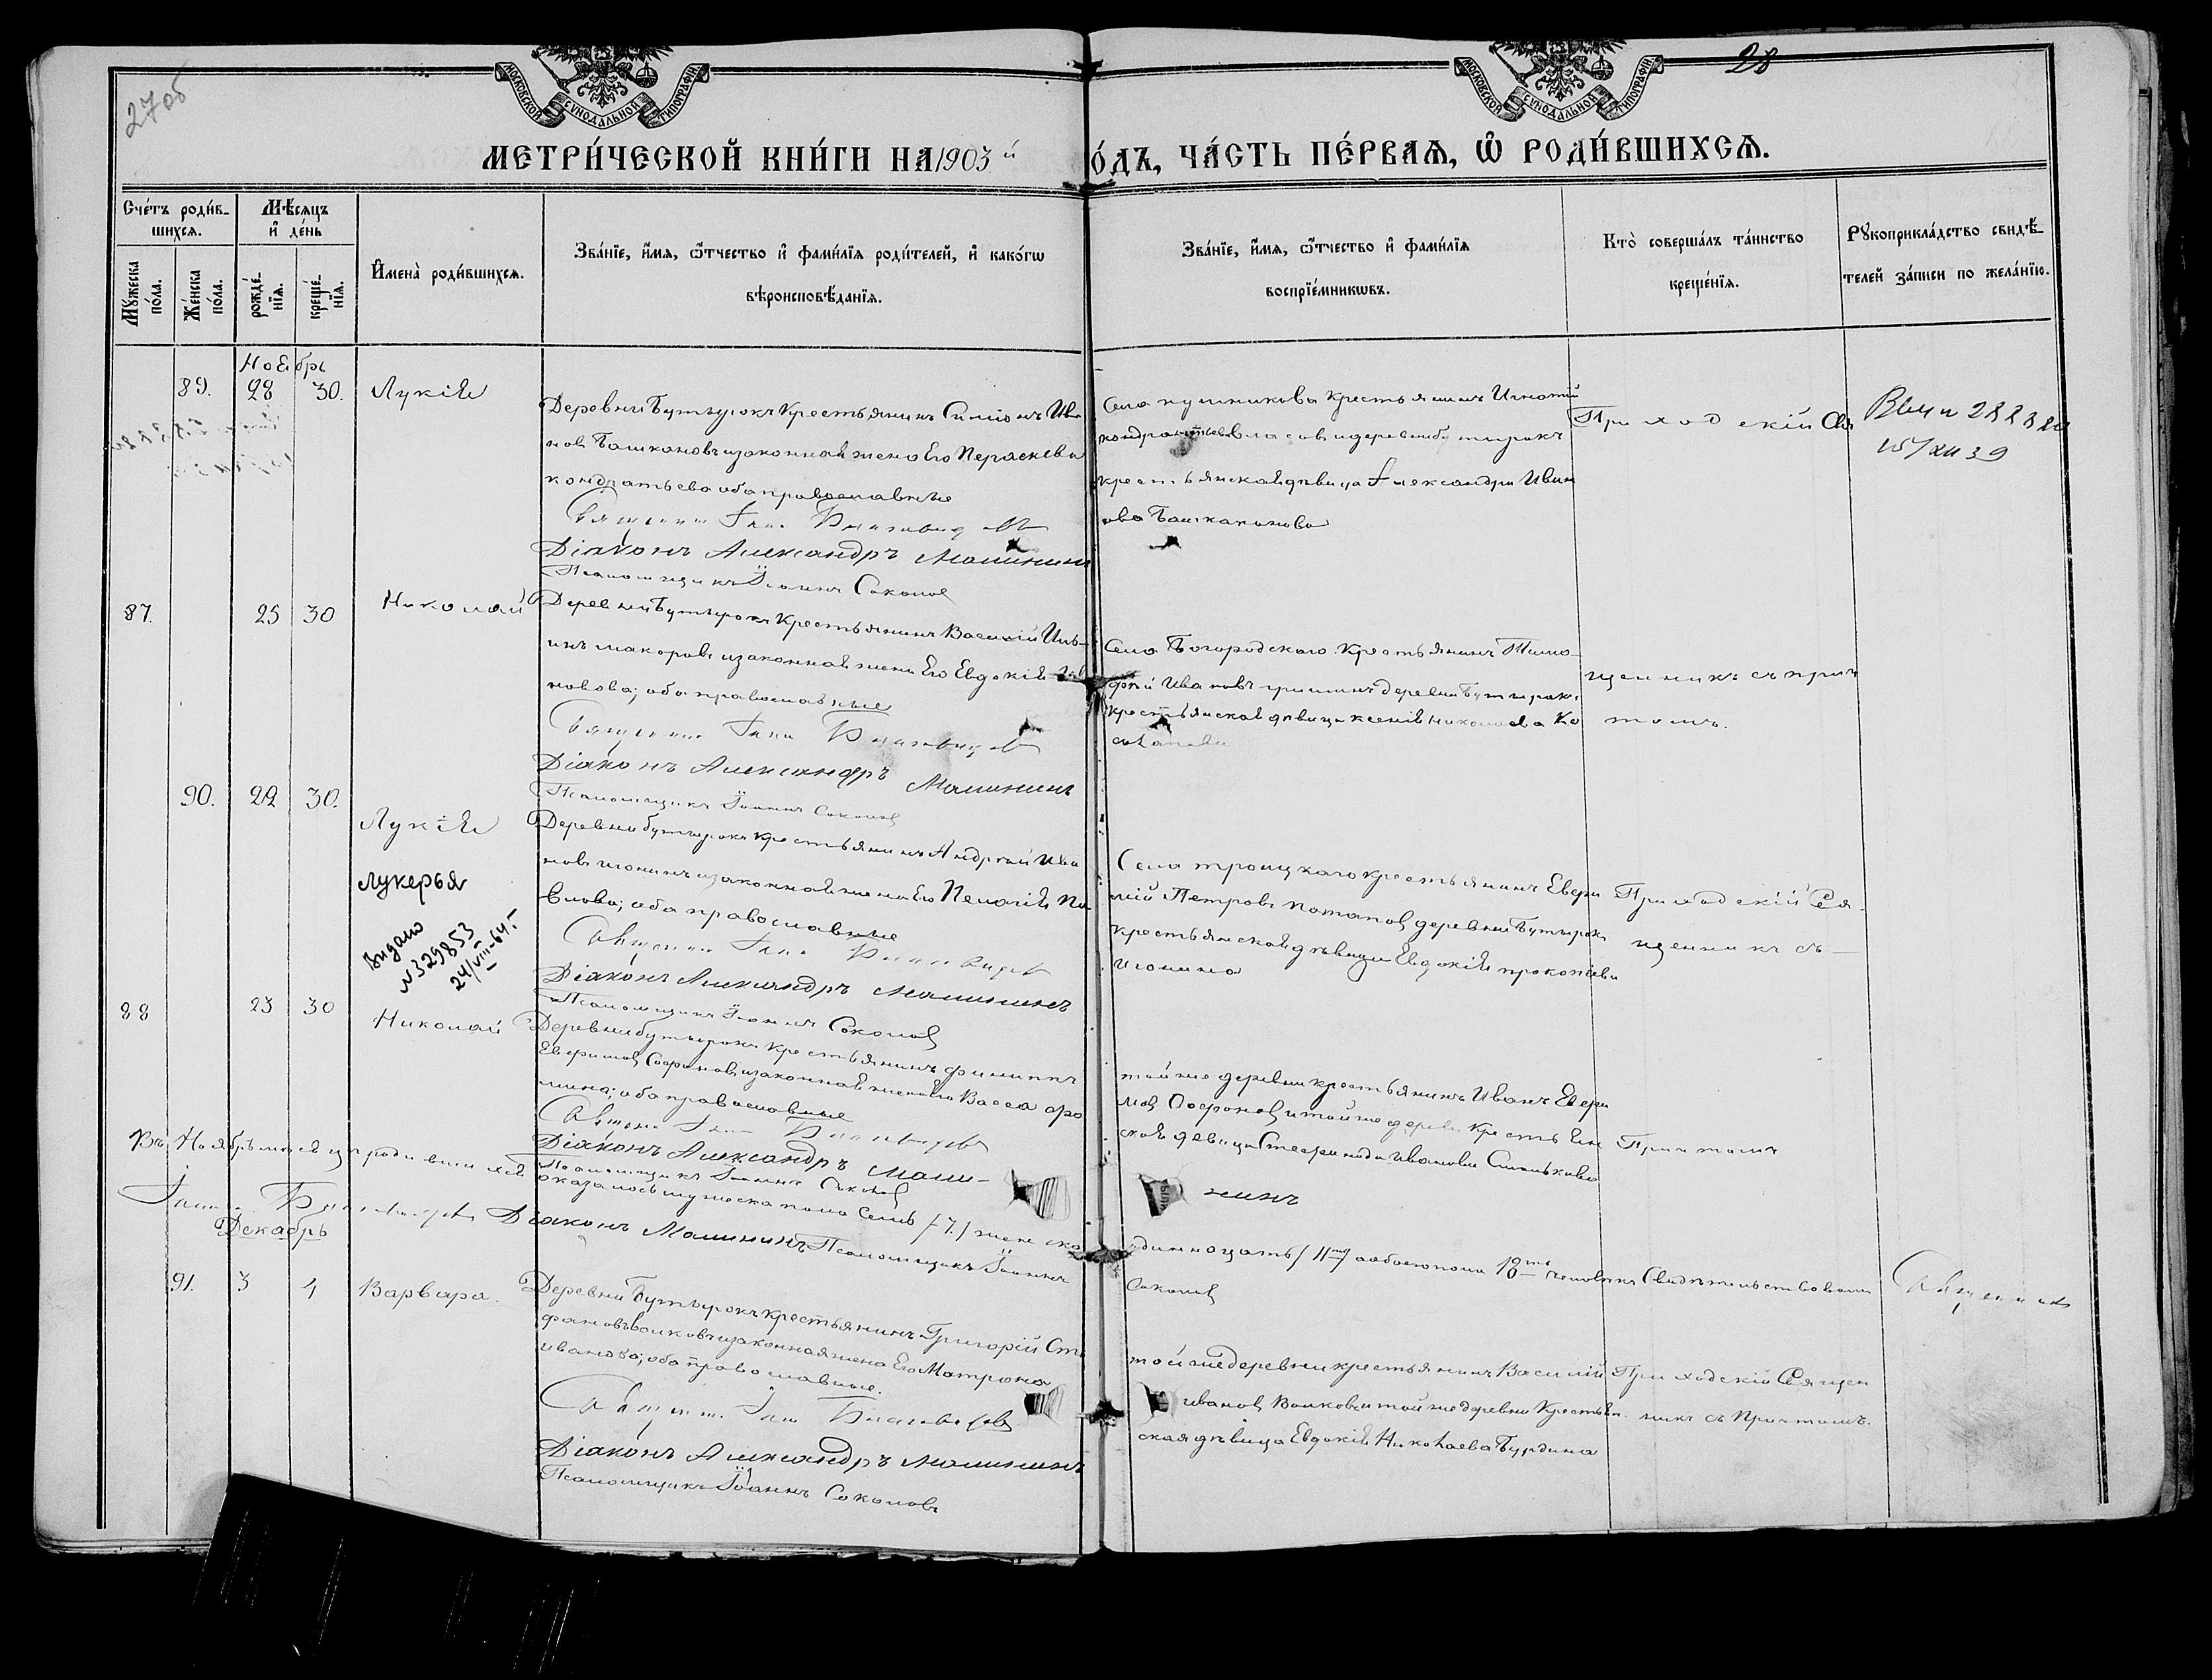 27об
28
МОСКОВСКОЙ СУНОДАЛЬНОЙ ТИПОГРАФІИ
МОСКОВСКОЙ СУНОДАЛЬНОЙ ТИПОГРАФІИ
МЕТРИ́ЧЕСКОЙ КНИ́ГИ НА 1903 й
О́ДЪ, ЧА́СТЬ ПЕ́РВАѦ, Ѿ РОДИ́ВШИХСѦ.
Сче́тъ роди́в-
шихсѧ.
Мꙋ́жеска
по́ла.
Же́нска
по́ла.
Мѣ́сѧцъ
и҆ де́нь
рожде́-
нїѧ.
креще́-
нїѧ.
И҆мена̀ роди́вшихсѧ.
Зва́нїе, и҆́мѧ, ѻ҆́тчество и҆ фами́лїѧ роди́телей, и҆ како́гѡ
вѣроисповѣ́данїѧ.
Зва́нїе, и҆́мѧ, ѻ҆́тчество и҆ фами́лїѧ
воспрїе́мникѡвъ.
Кто̀ соверша́лъ та́инство
креще́нїѧ.
Рꙋкоприкла́дство свидѣ́-
телей за́писи по жела́нїю.
Ноябрь
89. 28 30. Лукія
Деревни Бутырокъ Крестьянинъ Симіонъ Ива
новъ Башкановъ и законная жена Его Параскева
кондратьева оба православные
Священникъ
Діаконъ Александръ Малининъ
Псаломщикъ Іоаннъ Соколов
Села крестьянинъ Игнатій
Власовъ и деревни бутырокъ
крестьянская дѣвица Александра Иван
ова
Приходскій Свя
15/XII 39
87. 25 30 Николай
Деревни Бутырокъ Крестьянинъ Василій Иль-
инъ макаровъ и законная жена Его Евдокія
оба православные
Священникъ
Діаконъ Александръ Малининъ
Псаломщикъ Іоаннъ Соколов
Села Богородскаго Крестьянинъ Тимо-
фей Ивановъ гришинъ деревни Бутырокъ
крестьянская дѣвица ксенія николаева
щенникъ съ прич
томъ.
90. 22 30. Лукія
Лукерья
Выдано
№329853
24/VIII-64 г.
Деревни бутырокъ крестьянинъ Андрей Ива
новъ игонинъ и законная жена Его Пелагія Па
влова; оба православные
Діаконъ Александръ Малининъ
Псаломщикъ Іоаннъ Соколов
Села троицкаго крестьянинъ Евфи
мій Петровъ потапов деревни Бутырокъ
крестьянская дѣвица Евдокія прокопіева
Игонина
Приходскій Свя-
щенникъ съ
88 23 30 Николай
Деревни бутырокъ крестьянинъ филиппъ
Евфимов Софронов и законная жена его Васса фо
мина; оба православные
Діаконъ Александръ Мали-
Псаломщикъ Іоаннъ Соколов
нинъ
той же деревни крестьянинъ Иванъ Евфи
мов Софронов и той же деревни Крестьян
ская девица Стефанида Иванова
Причтомъ
Въ Ноябрѣ мѣсяцѣ родившихся оказалось мужеска пола Семь /7/ женска
одиннадцать /11/ а обоего пола 18 человѣкъ Свидѣтельствовали Священникъ
Діаконъ Малининъ Псаломщикъ Іоаннъ
Соколов
Декабрь
91. 3 4 Варвара.
Деревни Бутырокъ крестьянинъ Григорій Сте
фановъ волковъ и законная жена Его Матрона
иванова; оба православные.
Діаконъ Александръ Малининъ
Псаломщикъ Іоаннъ Соколовъ
той же деревни крестьянинъ Василій
иванов Волковъ и той же деревни Крестьян
ская дѣвица Евдокія Николаева Бурдина
Приходскій Священ
никъ съ Причтомъ.